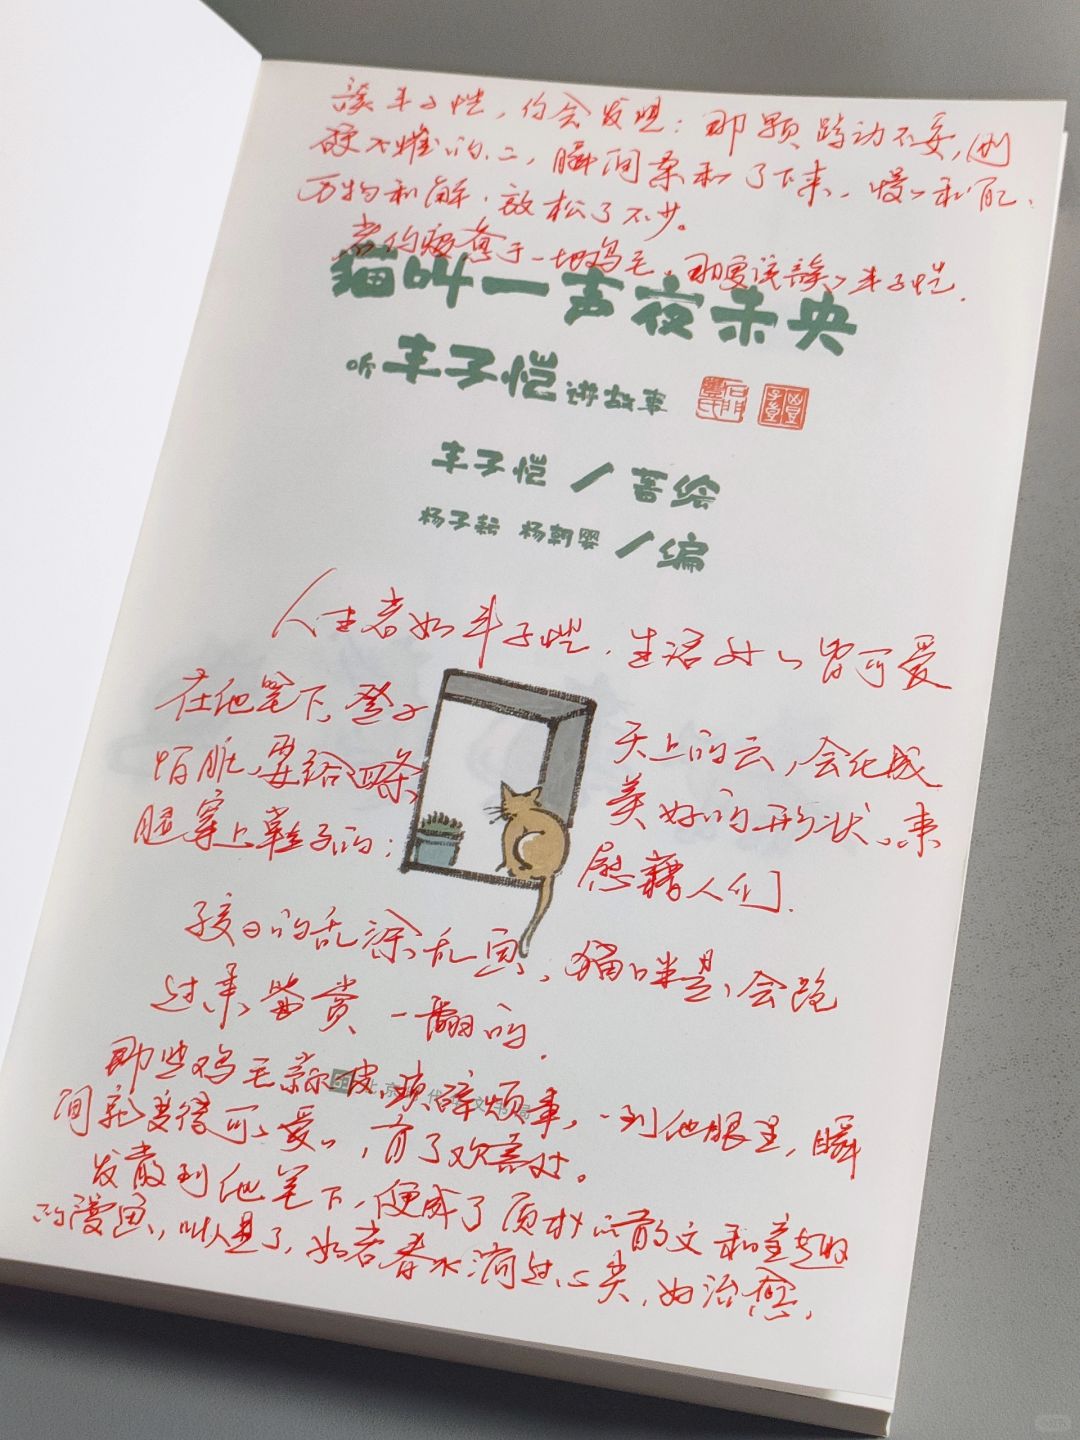 读丰子恺，你会发现：那颗跨动不安，刚
硬不摧的心，瞬间柔和了下来，慢慢和自己、
万物和解，放松了不少。
若你疲惫于一地鸡毛，那更该读读丰子恺.
猫叫一声夜未央
听丰子恺讲故事
丰子恺／著绘
杨子耘 杨朝婴／编
人生若如丰子恺，生活处处皆可爱
在他笔下，凳子
怕脏，要给四条
腿穿上鞋子的；
天上的云，会化成
美好的形状，来
慰藉人们.
孩子的乱涂乱画，猫咪是会跑
过来鉴赏一翻的.
那些鸡毛蒜皮，琐碎烦事，一到他眼里，瞬
间就变得可可爱爱，有了欢喜处。
发散到他笔下，便成了质朴的散文和童趣
的漫画，叫人看了，如若春水淌过心尖，好治愈，
北京时代华文书局